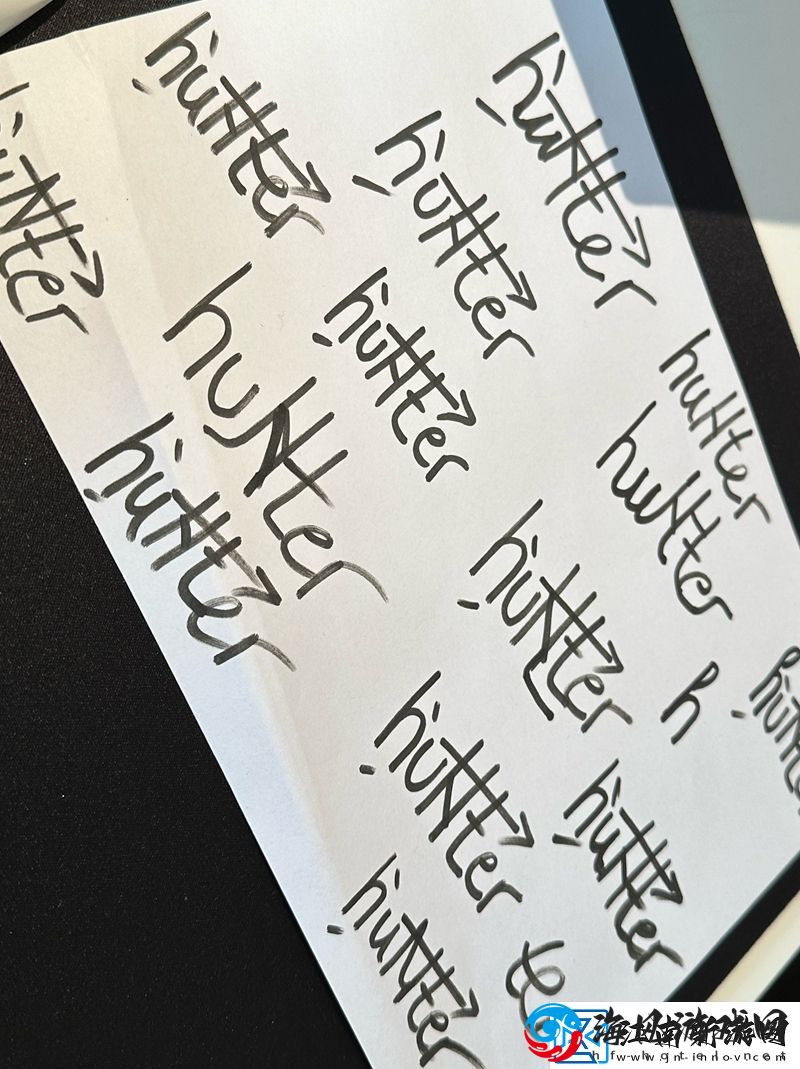 hunter
hunter
hunter
hunter
hunter
hunter
hunter
hunter
hunter
hunter
hunter
h
hunter
hunter
hunter
te